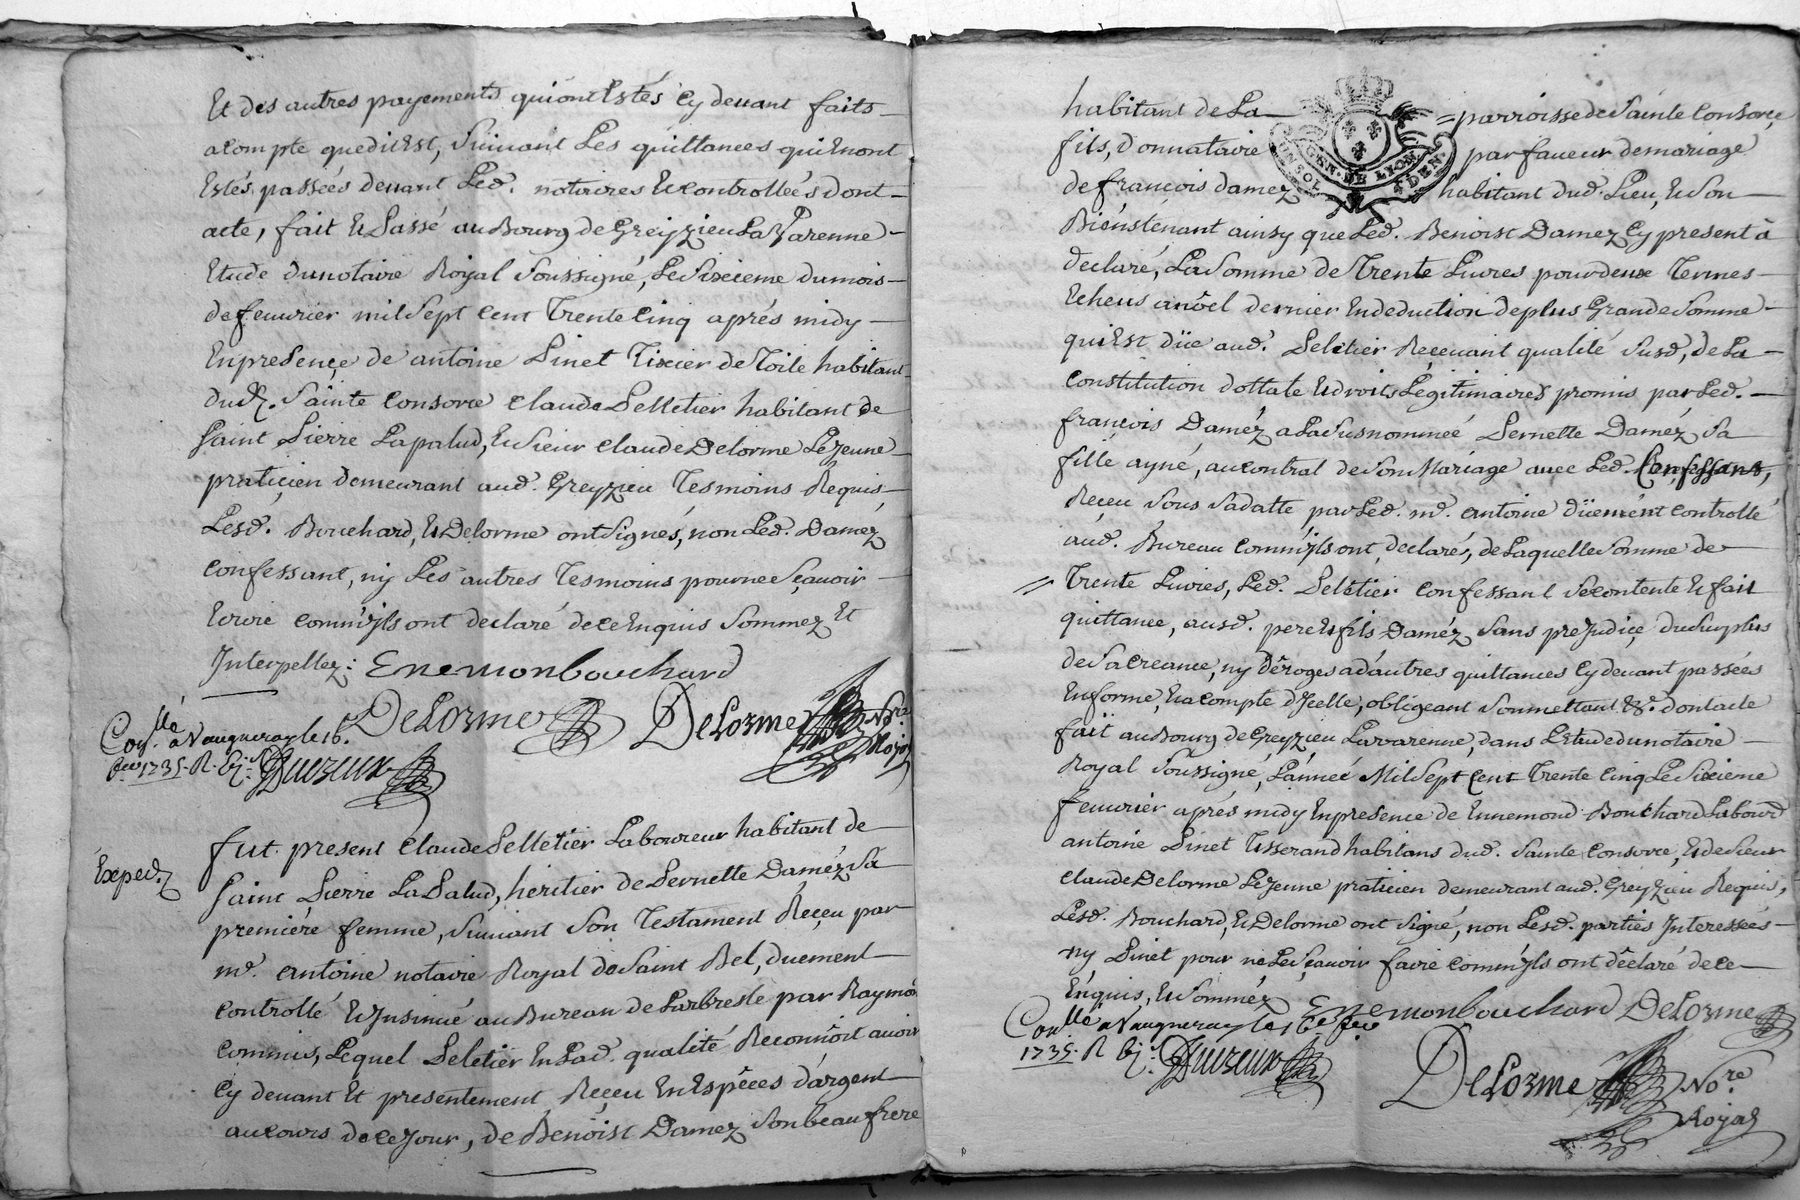 Et des autres payements qui ont Estés Cy devant faits
acompte que dit Est, Suivant Les quittances qui En ont
Estés passées devant Led. notaires Et controllées dont
acte, fait Et Passé au Bourg de Greyzieu La Varenne
Etude du notaire Royal Soussigné, Le Sixieme du mois
de fevrier mil Sept Cent Trente Cinq aprés midy
En presençe de antoine Pinet Tixier de Toile habitant
dud. Sainte Consorce Claude Pelletier habitant de
Saint Pierre Lapalud, Et Sieur Claude Delorme Le Jeune
praticien demeurant aud. Greyzieu Tesmoins Requis
Lesd. Bouchard, Et Delorme ont Signés, non Led. Daméz
confessant, ny Les autres Tesmoins pour ne Sçavoir
Ecrire comm'ils ont declaré de ce Enquis Sommez Et
Interpellez: Enemon bouchard
Delorme Delorme No.re Royal
Con.llé a Vaugneray le 16.
fev. 1735. R. 6s. Duvzeux
Exped.
fut present Claude Pelletier Laboureur habitant de
Saint Pierre La Palud, heritier de Pernette Daméz Sa
premiére femme, Suivant Son Testament Reçeu par
me. Antoine notaire Royal de Saint Bel, duement
Controllé Et Insinué au Bureau de Larbresle par Raymon
Commis, Lequel Peletier En Lad. qualité Reconnoit avoir
Cy devant Et presentement Reçeu En Espéces d'argent
au cours de ce Jour, de Benoist Damez Son beau frere
GEN. DE LYON
habitant de La parroisse de Sainte Consorce
fils, Donnataire par faveur de mariage
de françois damez habitant dud. Lieu, Et Son
Bienstenant ainsy que Led. Benoist Damez Cy present à
declaré, La Somme de Trente Livres pour deux Termes
Echeus a noël dernier En deduction de plus Grande Somme
qui Est düe aud. Peletier Reçevant qualité Susd, de La
Constitution dottale Et droits Légitimaires promis par Led.
françois Daméz a La Susnommée Pernette Daméz Sa
fille ayné, au contrat de Son Mariage avec Led. Confessant,
Reçeu Sous Sa datte par Led. me. Antoine düement controllé
aud. Bureau comm'ils ont declarés, de Laquelle Somme de
Trente Livres, Led. Peletier Confessant Se contente Et fait
quittance, ausd. pere Et fils Daméz Sans prejudiçe du Surplus
de Sa creance, ny déroger a d'autres quittances Cy devant passées
En forme, Et a compte d'Icelle, obligeant Soumettant &. dont acte
fait au Bourg de Greyzieu Lavarenne, dans L'Etude du notaire
Royal Soussigné, L'année Mil Sept Cent Trente Cinq Le Sixieme
fevrier aprés midy En presence de Ennemond Bouchard Labourd
antoine Pinet Tisserand habitans dud. Sainte Consorce, Et de Sieur
Claude Delorme Le Jeune praticien demeurant aud. Greyzieu Requis,
Lesd. Bouchard, Et Delorme ont Signé, non Lesd. parties Interessées
ny Pinet pour ne Le Sçavoir faire comm'ils ont déclaré de ce
Enquis, Et Sommez Enemon bouchard Delorme
Con.llé a Vaugneray le 16e fev.
1735. R 6s. Duvzeux
Delorme No.re
Royal